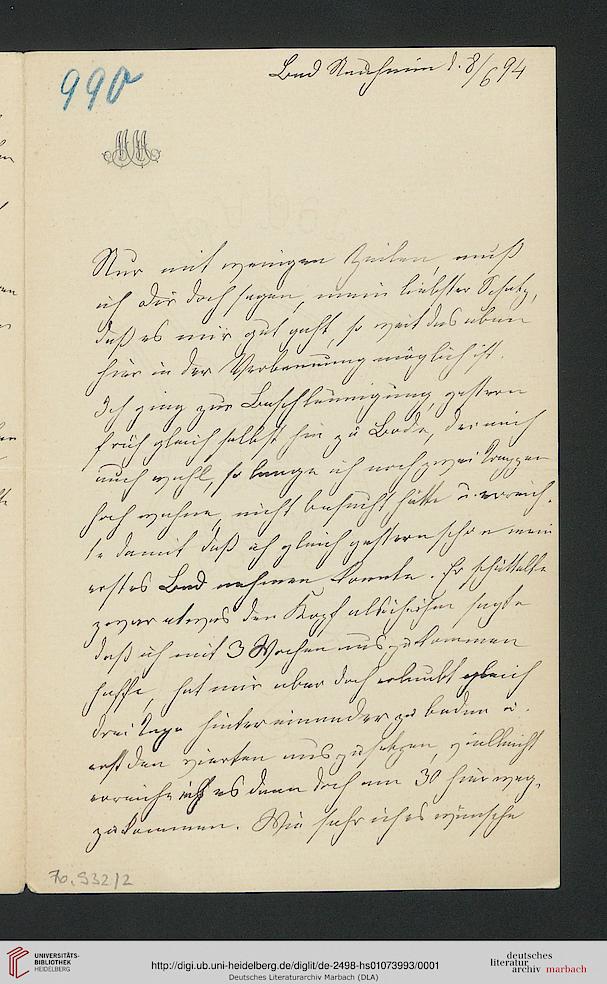 990
Bad Nauheim d. 8/6 94
Nur mit wenigen Zeilen muß
ich Dir doch sagen, mein liebster Schatz,
daß es mir gut geht, so weit das eben
hier in der Verbannung möglich ist.
Ich ging zur Beschleunigung gestern
früh gleich selbst hin zu Bode, der mich
auch wohl, so lange ich noch zwei Treppen
hoch wohne, nicht besucht hätte u. erreich-
te damit daß ich gleich gestern schon mein
erstes Bad nehmen konnte. Er schüttelte
zwar etwas den Kopf als ich ihm sagte
daß ich mit 3 Wochen auszukommen
hoffe, hat mir aber doch erlaubt gleich
drei Tage hintereinander zu baden u.
erst den vierten auszusetzen, vielleicht
erreiche ich es dann doch am 30 hier weg-
zukommen. Wie sehr ich es wünsche
70.932/2
UNIVERSITÄTS-
BIBLIOTHEK
HEIDELBERG
http://digi.ub.uni-heidelberg.de/diglit/de-2498-hs01073993/0001
Deutsches Literaturarchiv Marbach (DLA)
deutsches
literatur
archiv marbach